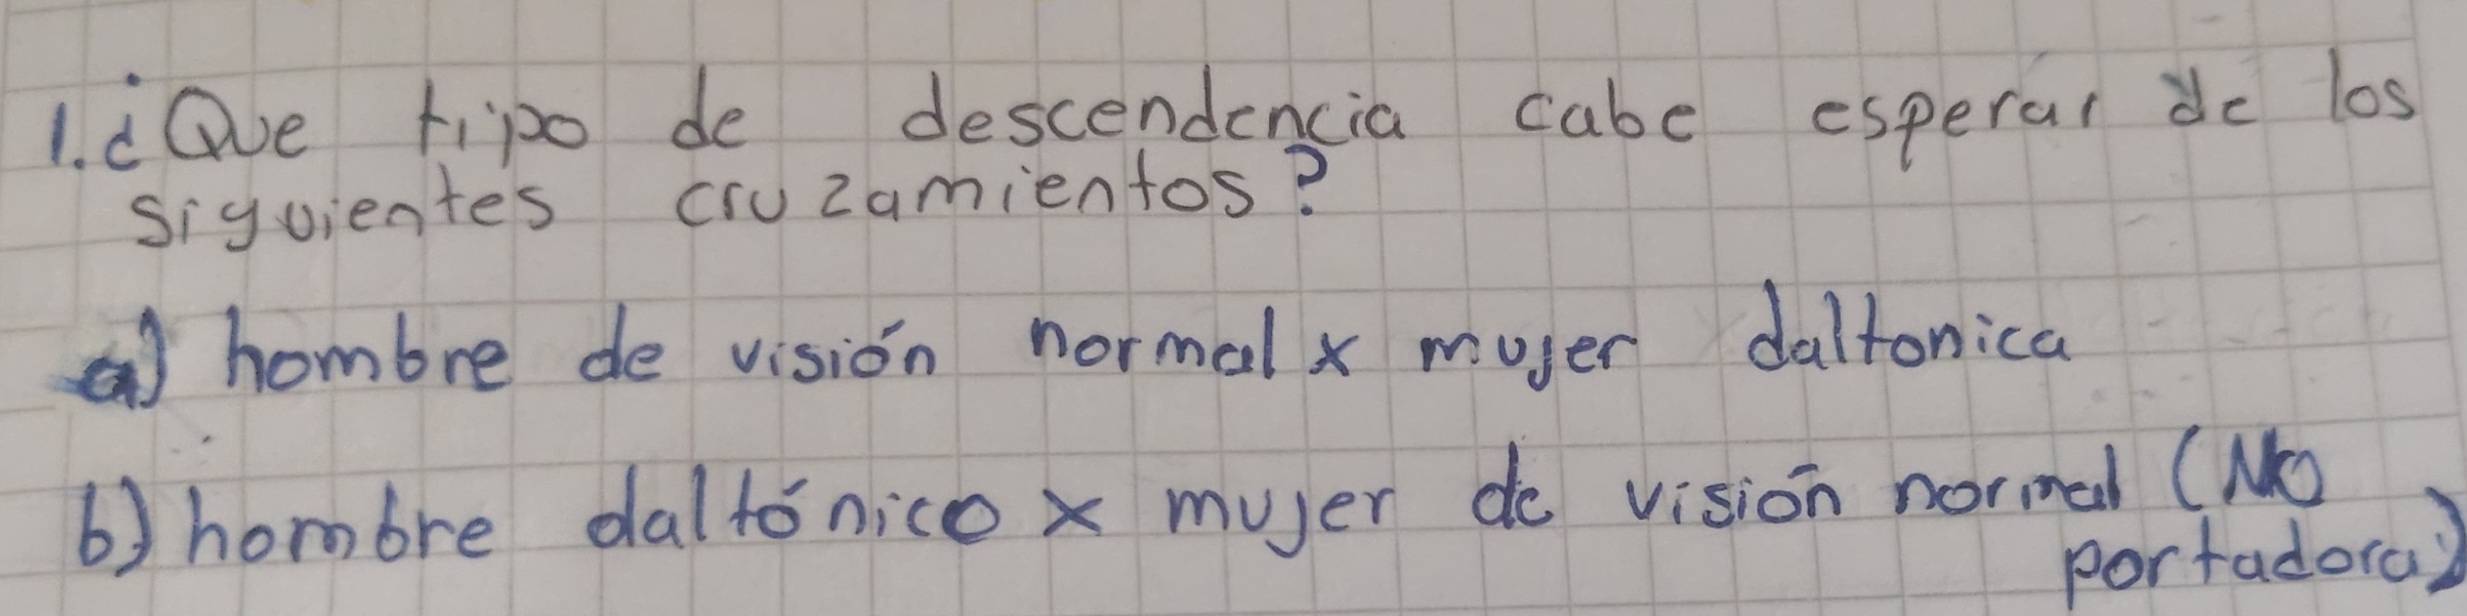 1. ¿Que tipo de descendencia cabe esperar de los
siguientes cruzamientos?
a) hombre de visión normal x mujer daltonica
b) hombre daltónico x mujer de visión normal (No
portadora)